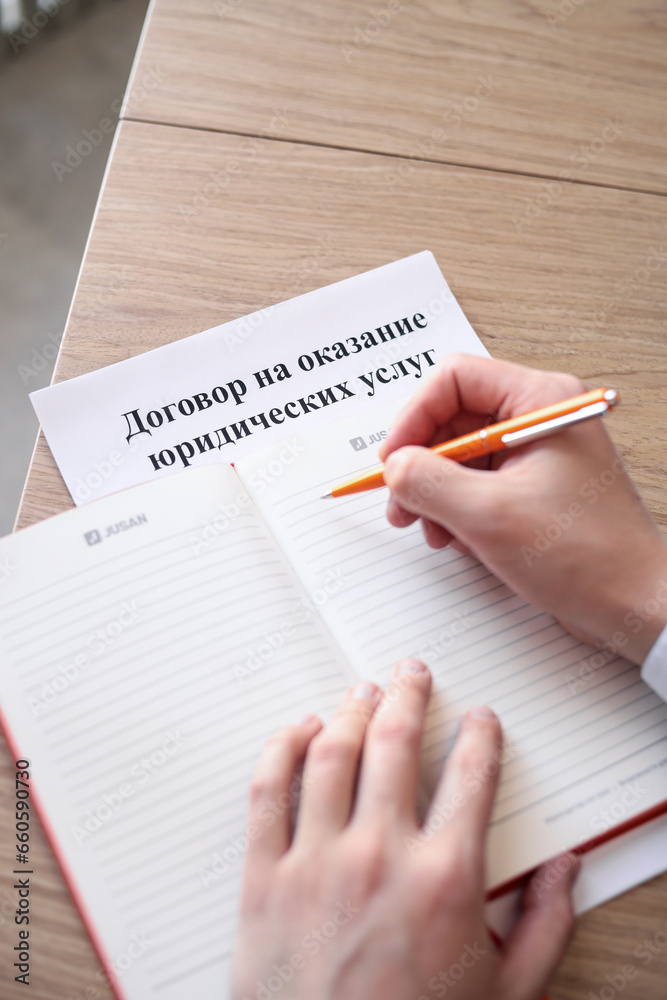 Договор на оказание
юридических услуг
JUSAN
JUS
Adobe Stock | #660590730